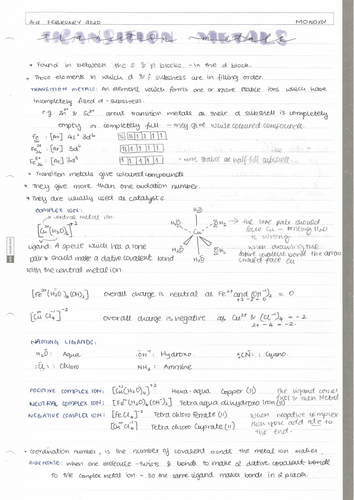 3rd FEBRUARY 2020 MONDAY
TRANSITION METALS
• Found in between the s & p blocks - in the d block.
• Those elements in which d & f subshells are in filling order.
TRANSITION METALS: An element which forms one or more stable ions which have
incompletely filled d-subshell.
e.g. Zn²⁺ & Sc³⁺ arent transition metals as their d subshell is completely
empty or completely full - they give white coloured compounds.
Fe : [Ar] 4s² 3d⁶
Fe²⁺ : [Ar] 3d⁶
Fe³⁺ : [Ar] 3d⁵ - more stable as half full subshell.
• Transition metals give coloured compounds
• They give more than one oxidation number.
• They are usually used as catalysts.
COMPLEX ION:
central metal ion
[Cu(H₂O)₆]⁺²
Ligand: A specie which has a lone
pair & should make a dative covalent bond
with the central metal ion.
H₂O
H₂O Cu OH₂
H₂O OH₂
H₂O
→ the lone pair should
face Cu - writing H₂O
is wrong
when drawing the
dative covalent bond the arrow
should face Cu
[Fe²⁺(H₂O)₄(OH)₂] overall charge is neutral as Fe²⁺ and (OH⁻)₂ = 0
+2-2 = 0
[Cu Cl₄]⁻² overall charge is negative as Cu²⁺ & (Cl⁻)₄ = -2
2+ -4 = -2.
NAMING LIGANDS:
H₂O: Aqua :OH⁻: Hydroxo. :CN: : Cyano.
:Cl: : Chloro NH₃ : Ammine
POSITIVE COMPLEX ION: [Cu(H₂O)₆]⁺² Hexa-aqua Copper (II) The ligand comes
first & then Metal
NEUTRAL COMPLEX ION: [Fe(H₂O)₄(OH)₂] Tetra aqua dihydroxo Iron (II)
NEGATIVE COMPLEX ION: [FeCl₄]⁻² Tetra chloro ferrate (II) When negative complex
[CuCl₄]⁻ Tetra chloro Cuprate (II) ion you add ate to
the end.
• Coordination number, is the number of covalent bonds the metal ion makes.
BIDENTATE: when one molecule twists & bends to make 2 dative covalent bonds
to the complex metal ion - so the same ligand makes bonds in 2 places.